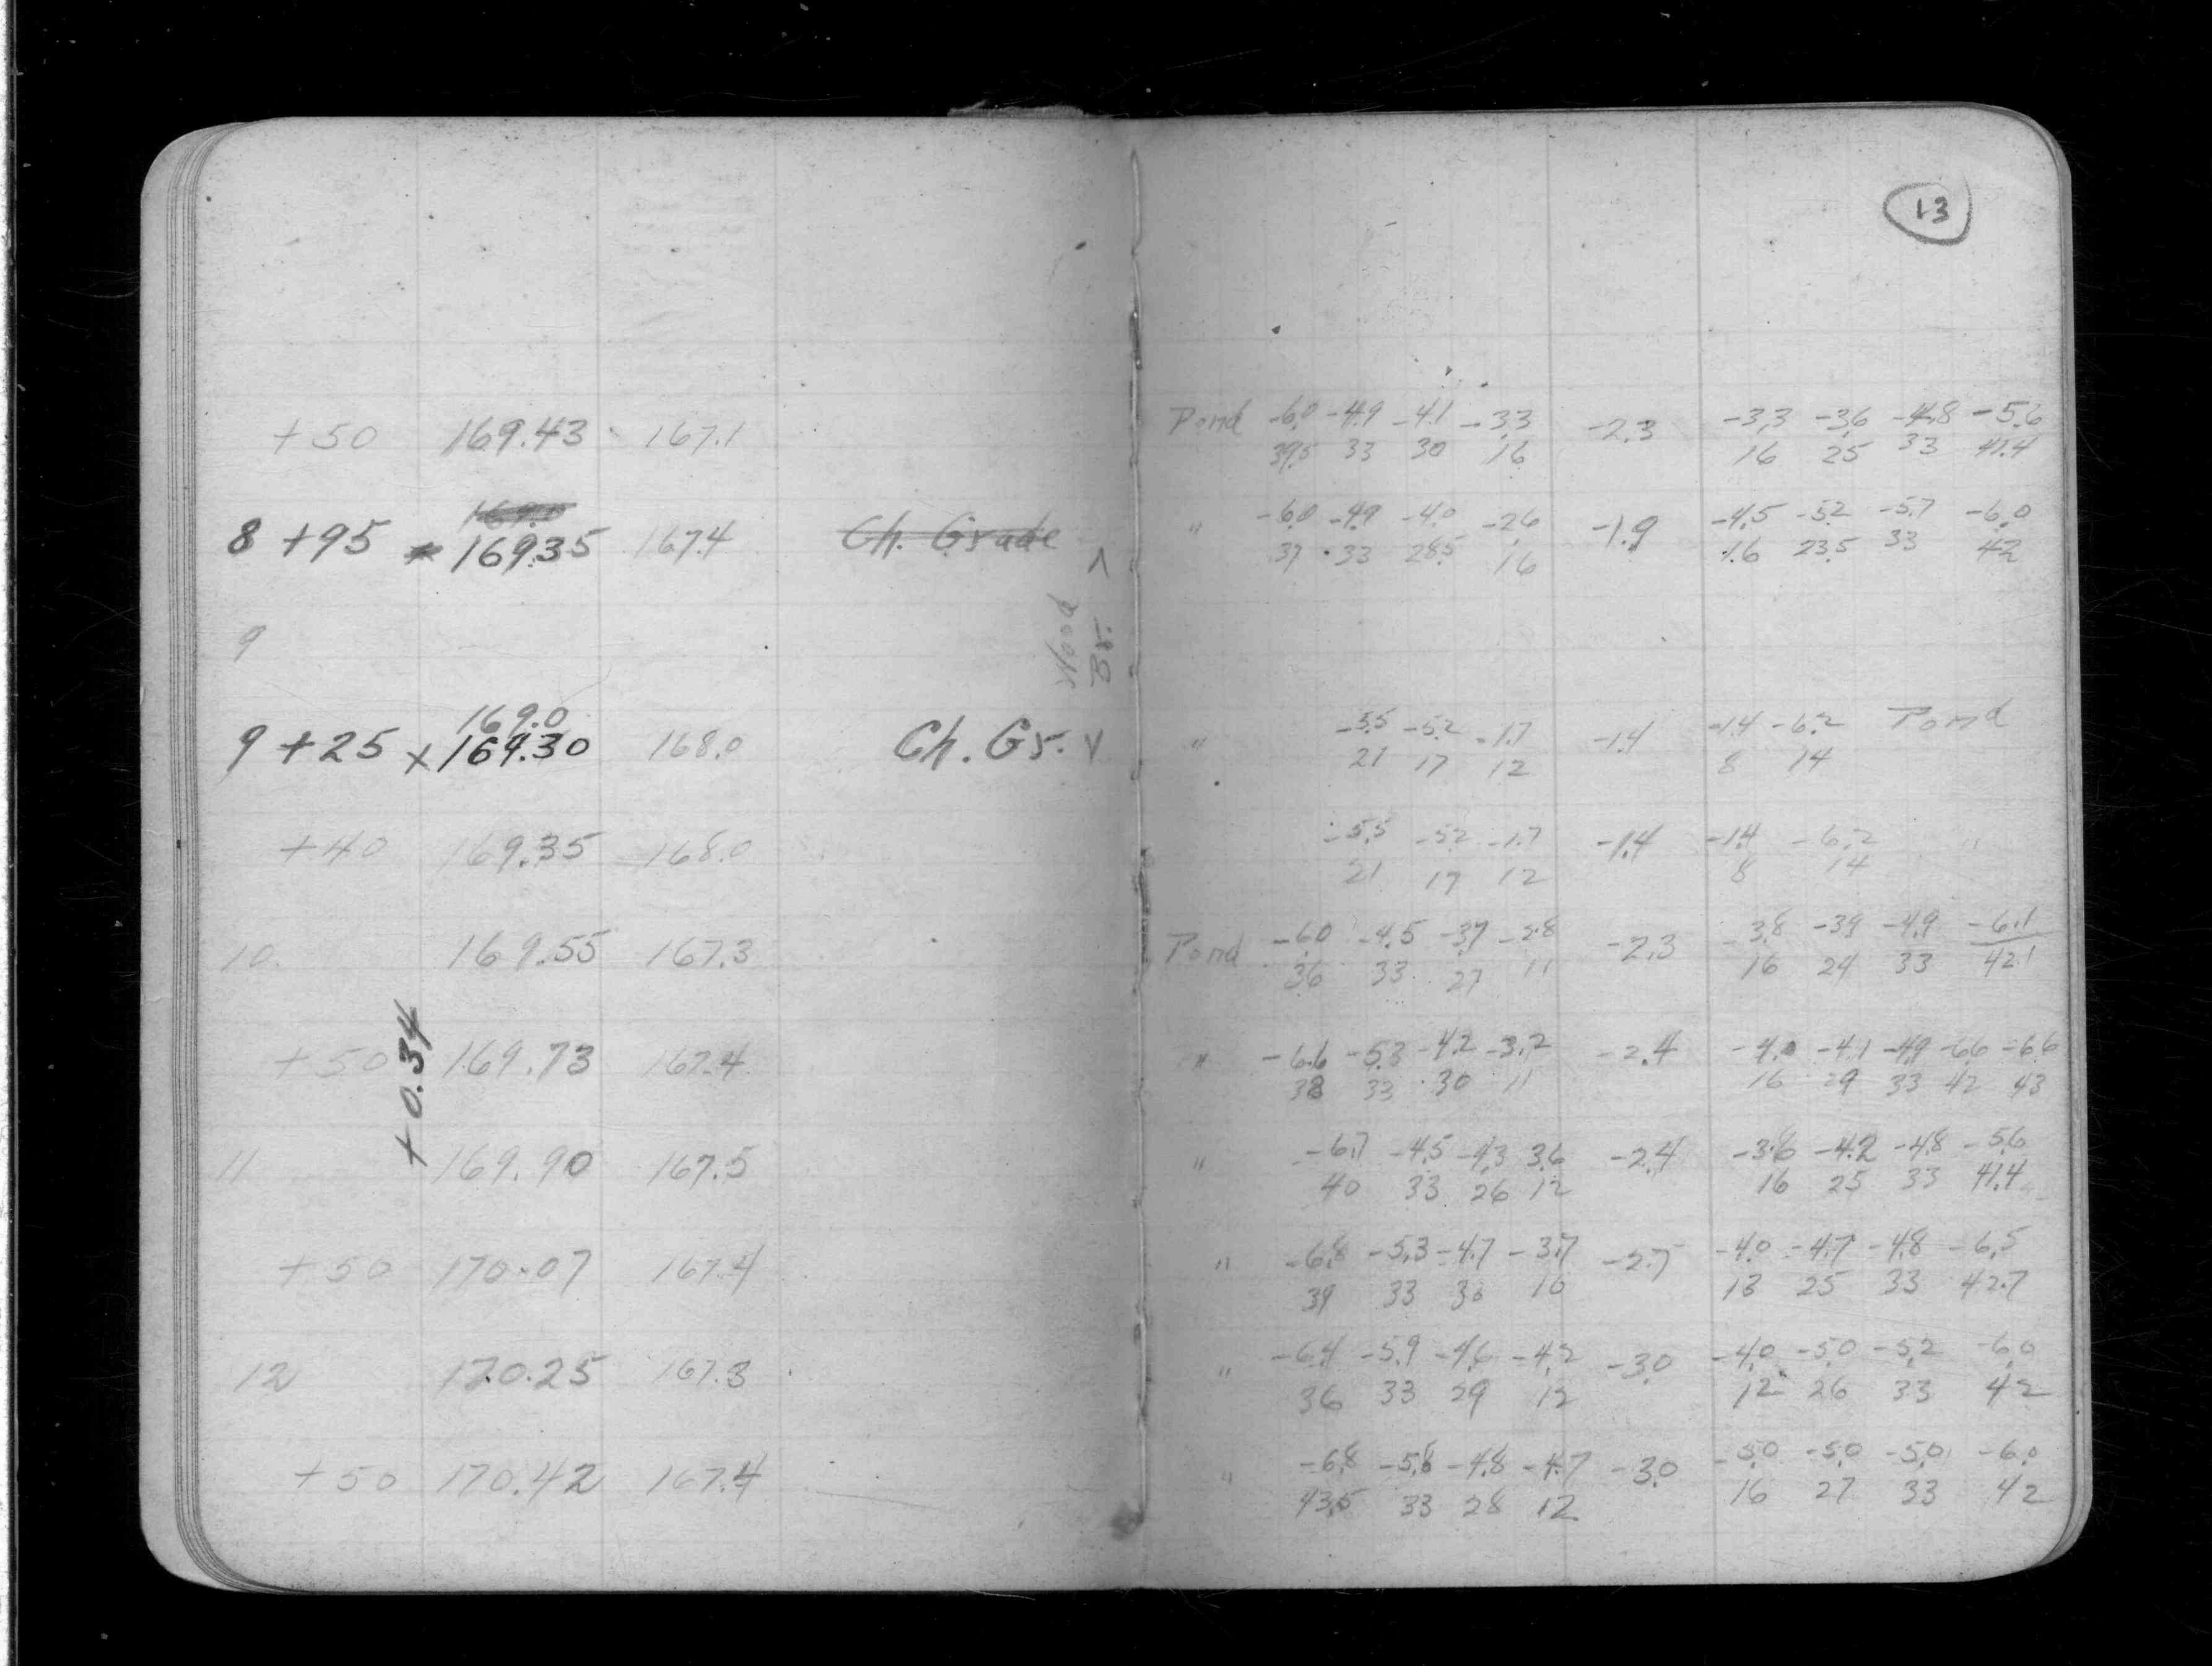 13
+50 169.43 167.1 Pond -6.0 -4.9 -4.1 -3.3 -2.3 -3.3 -3.6 -4.8 -5.6
39.5 33 30 16 16 25 33 41.4
169.0
8 +95 169.35 167.4 Ch. Grade " -6.0 -4.9 -4.0 -2.6 -1.9 -4.5 -5.2 -5.7 -6.0
37 33 28.5 16 16 23.5 33 42
9
Wood
Br.
169.0
9 +25 x 169.30 168.0 Ch. Gr. " -5.5 -5.2 -1.7 -1.4 -1.4 -6.2 Pond
21 17 12 8 14
+40 169.35 168.0 -5.5 -5.2 -1.7 -1.4 -1.4 -6.2 "
21 17 12 8 14
10 169.55 167.3 Pond -6.0 -4.5 -3.7 -2.8 -2.3 -3.8 -3.9 -4.9 -6.1
36 33 27 11 16 24 33 42.1
+0.34
+50 169.73 167.4 " -6.6 -5.3 -4.2 -3.2 -2.4 -4.0 -4.1 -4.9 -6.6 -6.6
38 33 30 11 16 29 33 42 43
11 169.90 167.5 " -6.7 -4.5 -4.3 3.6 -2.4 -3.8 -4.2 -4.8 -5.6
40 33 26 12 16 25 33 41.4
+50 170.07 167.4 " -6.8 -5.3 -4.7 -3.7 -2.7 -4.0 -4.7 -4.8 -6.5
39 33 30 10 13 25 33 42.7
12 170.25 167.3 " -6.4 -5.9 -4.6 -4.2 -3.0 -4.0 -5.0 -5.2 -6.0
36 33 29 12 12 26 33 42
+50 170.42 167.4 " -6.8 -5.8 -4.8 -4.7 -3.0 -5.0 -5.0 -5.0 -6.0
43.5 33 28 12 16 27 33 42